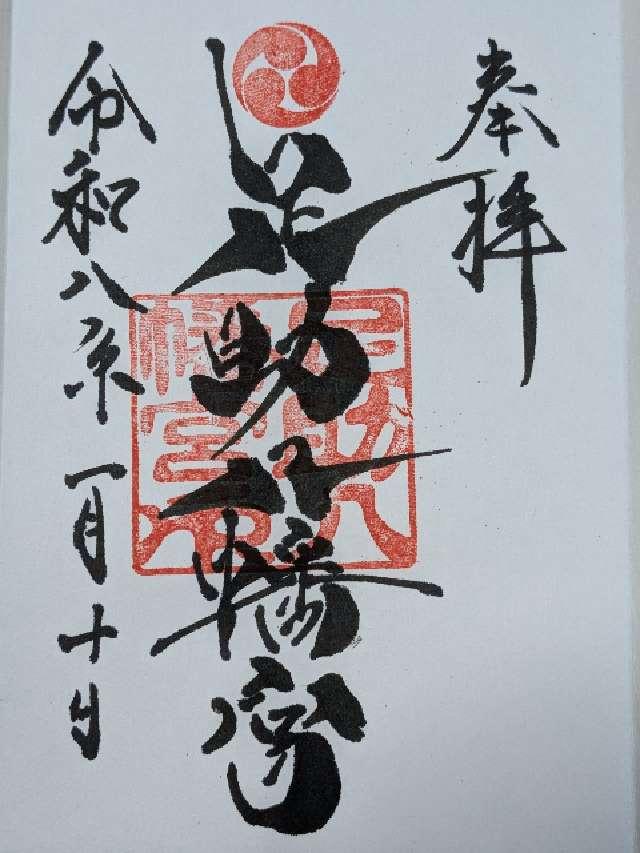 奉拝
足助八幡宮
令和八年一月十日